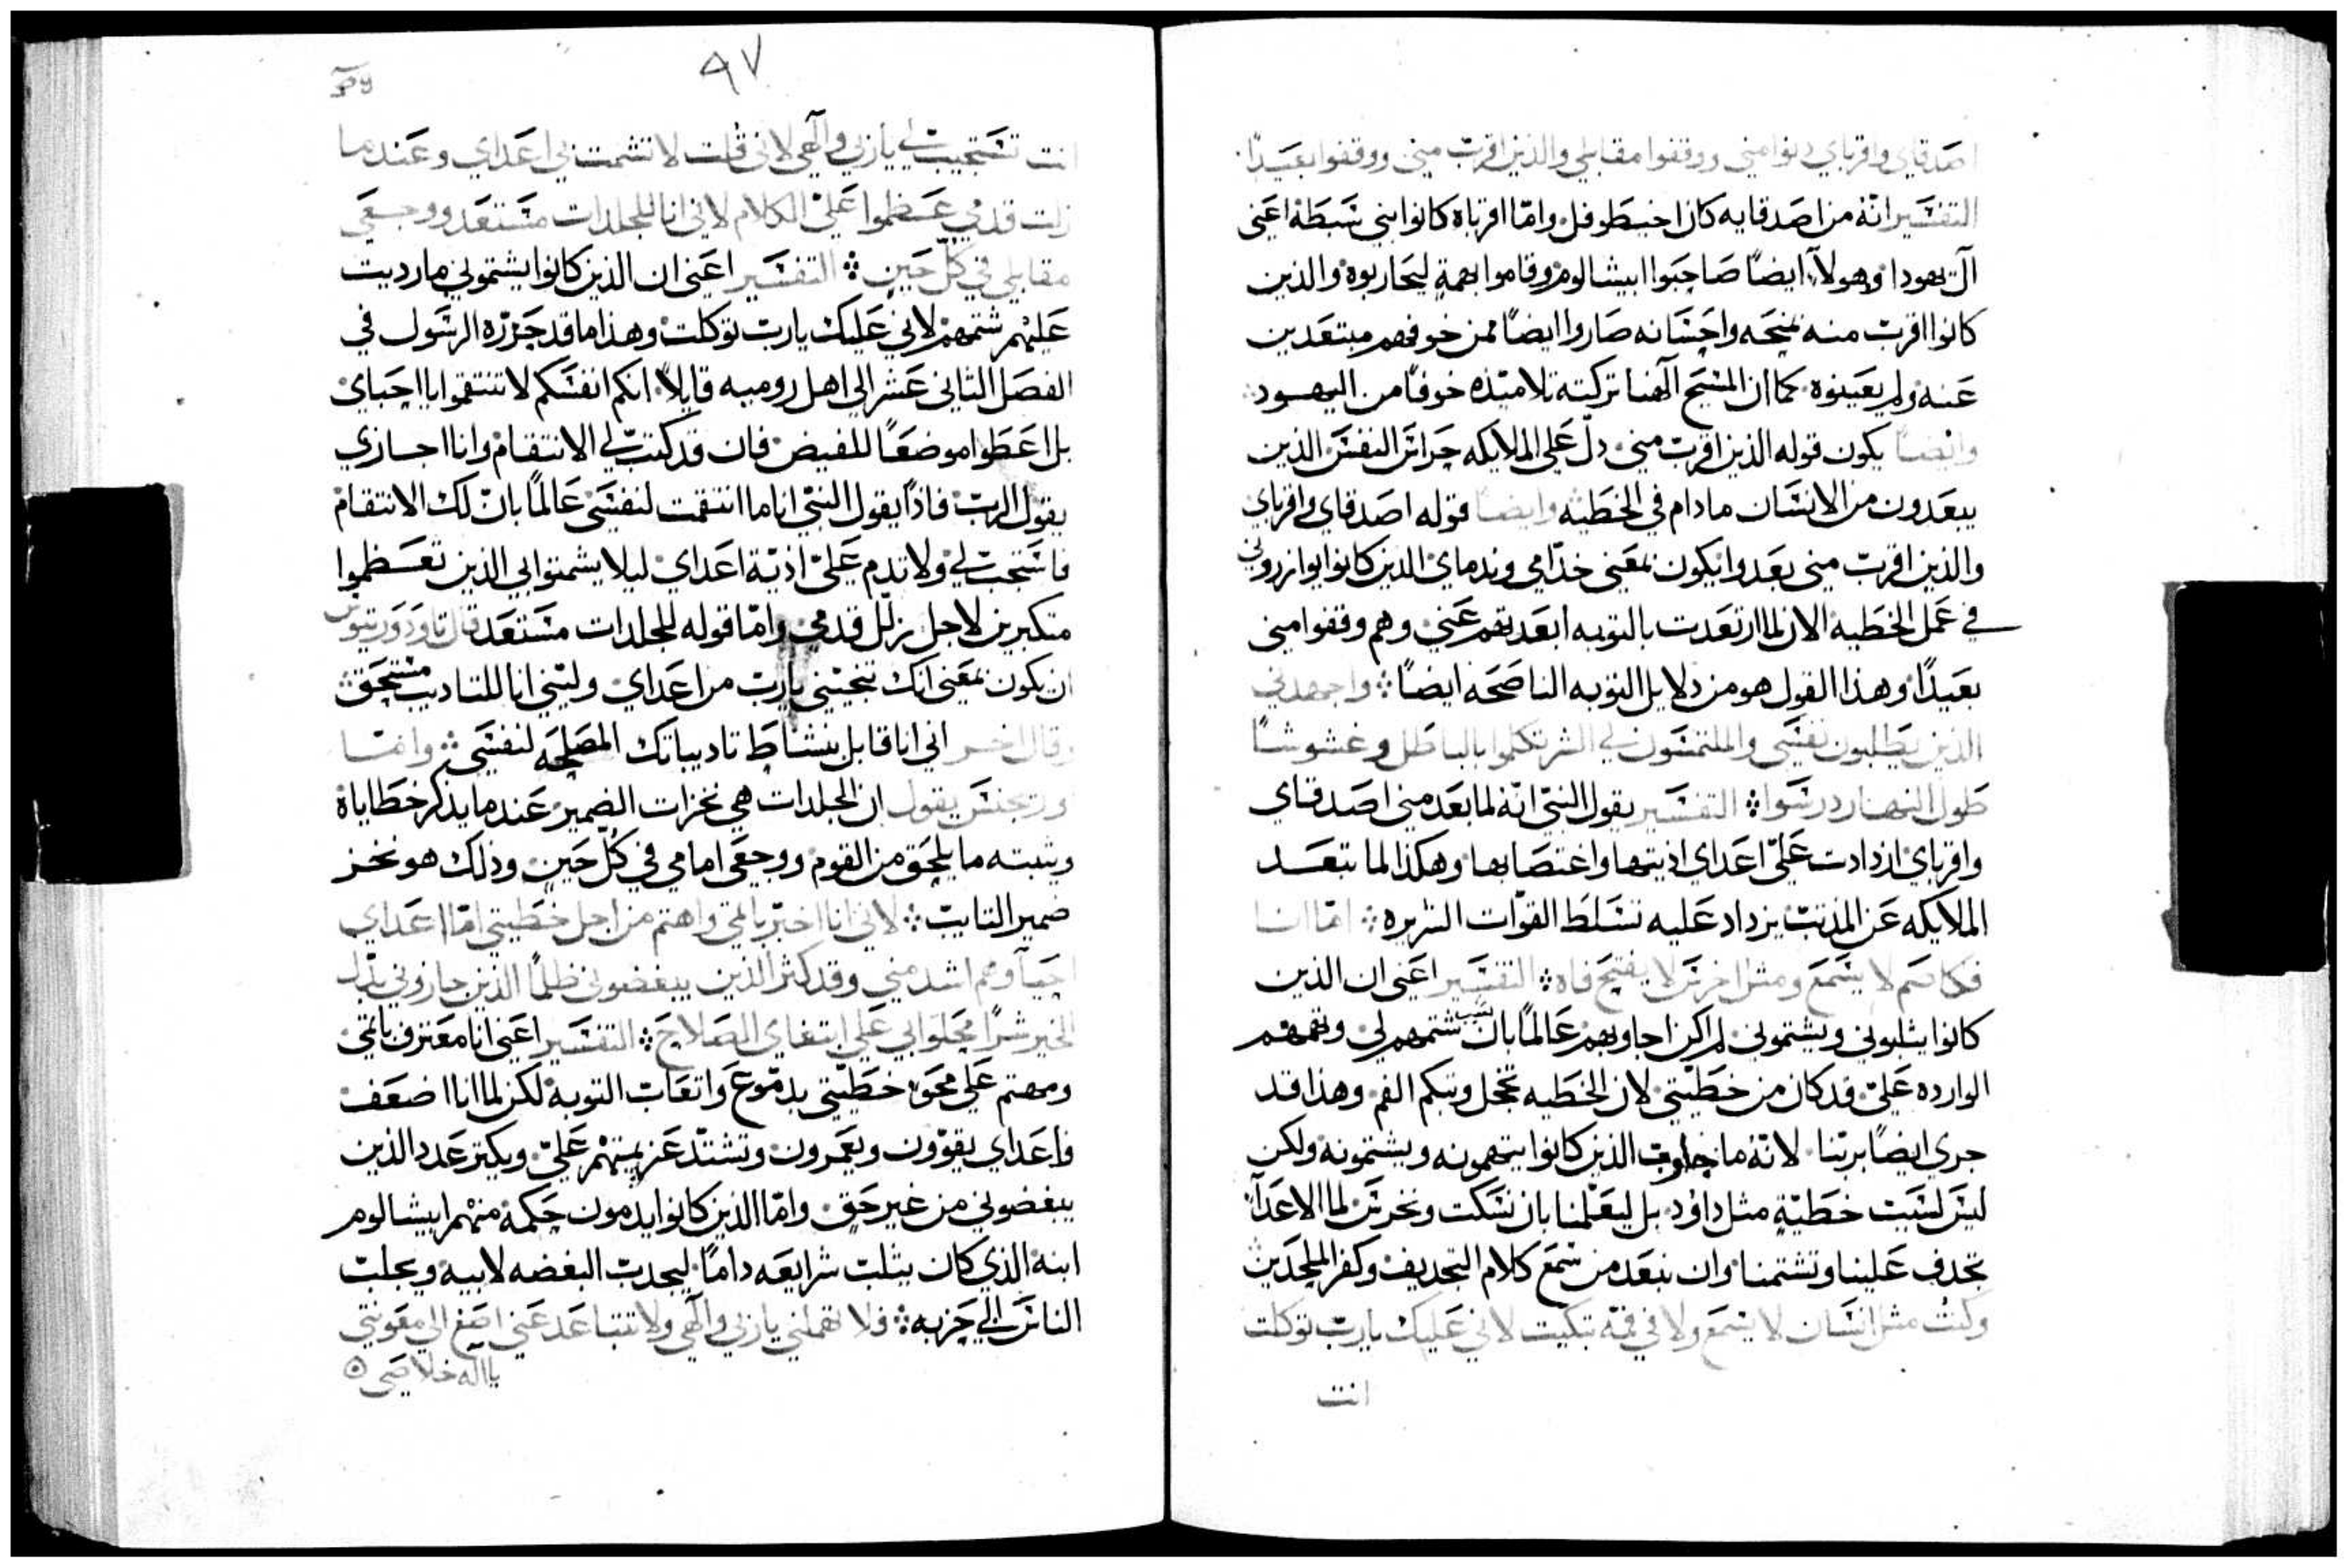 اصدقاي واقرباي دنوا مني ووقفوا مقابلي والذين اقرب مني ووقفوا بعيدًا
التفسير انه من اصدقايه كان اخيطوفل وامّا اقرباه كانوا بني سبطه اعني
آل يهودا وهولآء ايضًا صاحبوا ابيشالوم وقاموا بهمةٍ ليحاربوه والذين
كانوا اقرب منه بمنحه واحسانه صاروا ايضًا من خوفهم مبتعدين
عنه ولم يعينوه كما ان المسيح آلهنا تركته تلاميذه خوفًا من اليهود
وايضًا يكون قوله الذين اقرب مني دلّ على الملايكه حراس النفس الذين
يبعدون من الانسان مادام في الخطيه وايضا قوله اصدقاي واقرباي
والذين اقرب مني بعدوا يكون بمعني خدّامي وندماي الذين كانوا يوازروني
في عمل الخطيه الان لما ارتعدت بالتوبه ابعدتهم عني وهم وقفوا مني
بعيدًا وهذا القول هو من دلايل التوبه الناصحه ايضًا ⁘ واجهدني
الذين يطلبون نفسي والملتمسون لي الشر تكلموا بالباطل وغشوشًا
طول النهار درسوا ⁘ التفسير يقول النبيّ انّه لما بعد مني اصدقاي
واقرباي ازدادت عليّ اعداي اذيتها واغتصابها وهكذا لما تبعد
الملايكه عن المذنب يزداد عليه تسلط القوّات الشريره ⁘ امّا انا
فكاصم لا يسمع ومثل اخرس لا يفتح فاه ⁘ التفسير اعني ان الذين
كانوا يثلبوني ويشتموني لم اكن اجاوبهم عالمًا بان سبب شتمهم لي وتهمهم
الوارده عليّ قد كان من خطيتي لان الخطيه تخجل وتبكم الفم وهذا قد
جري ايضًا بربّنا لانّه ما جاوب الذين كانوا يتهمونه ويشتمونه ولكن
ليس لسبب خطيّةٍ مثل داوُد بل ليعلّمنا بان نسكت ونخرس لما الاعدآء
تجدف علينا وتشتمنا وان نبعد من سمع كلام التجديف وكفر الملحدين
وكنت مثل انسان لا يسمع ولا في فمّه تبكيت لاني عليك يارب توكلت
انت
٩٧
انت تستجيب لي ياربي وآلهي لاني قلت لا تشمت بي اعداي وعندما
زلت قدمي عظموا عليّ الكلام لاني انا للجلدات مستعد ووجعي
مقابلي في كلّ حين ⁘ التفسير اعني ان الذين كانوا يشتموني ما رديت
عليهم شتمهم لاني عليك يارب توكلت وهذا ما قد حرّره الرسول في
الفصل الثاني عشر الي اهل روميه قايلاً انكم انفسكم لا تنتقموا يا احباي
بل اعطوا موضعًا للغيض فان قد كتب لي الانتقام وانا اجازي
يقول الرب فاذًا يقول النبيّ انا ما انتقمت لنفسي عالمًا بانّ لك الانتقام
فاستجب لي ولا تدم عليّ اذيّة اعداي ليلا يشمتوا بي الذين تعظموا
متكبرين لاجل زلل قدمي وامّا قوله للجلدات مستعد قال تاودوريتوس
ان يكون بمعني انك تنجيني يارب من اعداي ولنني انا للتاديب مستحق
وقال اخر اني انا قابل بنشاط تاديباتك المصلحه لنفسي ⁘ وامّا
اوريجنس يقول ان الجلدات هي نخزات الضمير عندما يذكر خطاياه
ويثبته ما يلحق من القوم ووجعي امامي في كُلّ حين وذلك هو نخز
ضمير التايب ⁘ لاني انا اخبّر باثمي واهتم من اجل خطيتي امّا اعداي
احيآ وهم اشد مني وقد كثر الذين يبغضوني ظلمًا الذين جازوني بدل
الخير شرًا محلوا بي علي ابتغاي الصلاح ⁘ التفسير اعني انا معترف باثمي
ومهتم علي محو خطيّتي بدموع واتعاب التوبه لكن لما انا اضعف
فاعداي يقوّون ويعمرون وتشتدّ عزيمتهم عليّ ويكتر عدد الذين
يبغضوني من غير حق وامّا الذين كانوا يدمون حكمه منهم ابيشالوم
ابنه الذي كان يثلب شرايعه دامًا ليجدب البغضه لابيه ويجلب
الناس الي حزبه ⁘ فلا تهملني ياربي وآلهي ولا تتباعد عني اصغ الي معونتي
يا اله خلاصي